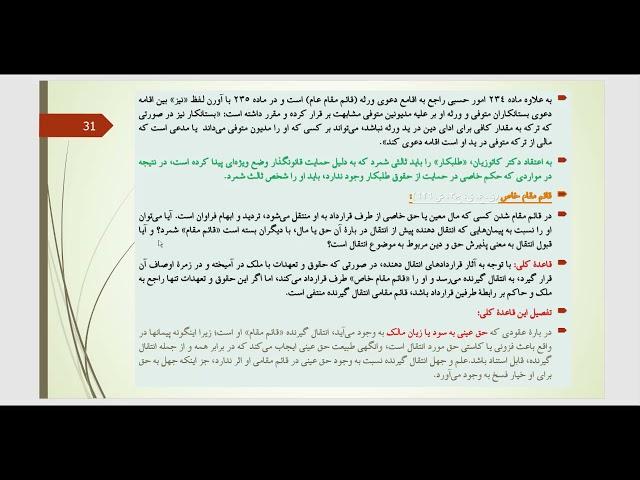 31
به علاوه ماده ۲۳٤ امور حسبی راجع به اقامع دعوی ورثه (قائم مقام عام) است و در ماده ۲۳۵ با آورن لفظ «نیز» بین اقامه
دعوی بستانکاران متوفی و ورثه او بر علیه مدیونین متوفی مشابهت بر قرار کرده و مقرر داشته است؛ «بستانکار نیز در صورتی
که ترکه به مقدار کافی برای ادای دین در ید ورثه نباشد، می‌تواند بر کسی که او را مدیون متوفی می‌داند یا مدعی است که
مالی از ترکه متوفی در ید او است اقامه دعوی کند».
به اعتقاد دکتر کاتوزیان، «طلبکار» را باید ثالثی شمرد که به دلیل حمایت قانونگذار وضع ویژه‌ای پیدا کرده است، در نتیجه
در مواردی که حکم خاصی در حمایت از حقوق طلبکار وجود ندارد، باید او را شخص ثالث شمرد.
قائم مقام خاص
در قائم مقام شدن کسی که مال معین یا حق خاصی از طرف قرارداد به او منتقل می‌شود، تردید و ابهام فراوان است. آیا می‌توان
او را نسبت به پیمان‌هایی که انتقال دهنده پیش از انتقال در بارۀ آن حق یا مال، با دیگران بسته است «قائم مقام» شمرد؟ و آیا
قبول انتقال به معنی پذیرش حق و دین مربوط به موضوع انتقال است؟
قاعدۀ کلی: با توجه به آثار قراردادهای انتقال دهنده، در صورتی که حقوق و تعهدات با ملک در آمیخته و در زمرۀ اوصاف آن
قرار گیرد، به انتقال گیرنده می‌رسد و او را «قائم مقام خاص» طرف قرارداد می‌کند، اما اگر این حقوق و تعهدات تنها راجع به
ملک و حاکم بر رابطۀ طرفین قرارداد باشد، قائم مقامی انتقال گیرنده منتفی است.
تفصیل این قاعدۀ کلی:
در بارۀ عقودی که حق عینی به سود یا زیان مالک به وجود می‌آید، انتقال گیرنده «قائم مقام» او است؛ زیرا اینگونه پیمانها در
واقع باعث فزونی یا کاستی حق مورد انتقال است، وانگهی طبیعت حق عینی ایجاب می‌کند که در برابر همه و از جمله انتقال
گیرنده، قابل استناد باشد.علم و جهل انتقال گیرنده نسبت به وجود حق عینی در قائم مقامی او اثر ندارد، جز اینکه جهل به حق
برای او خیار فسخ به وجود می‌آورد.